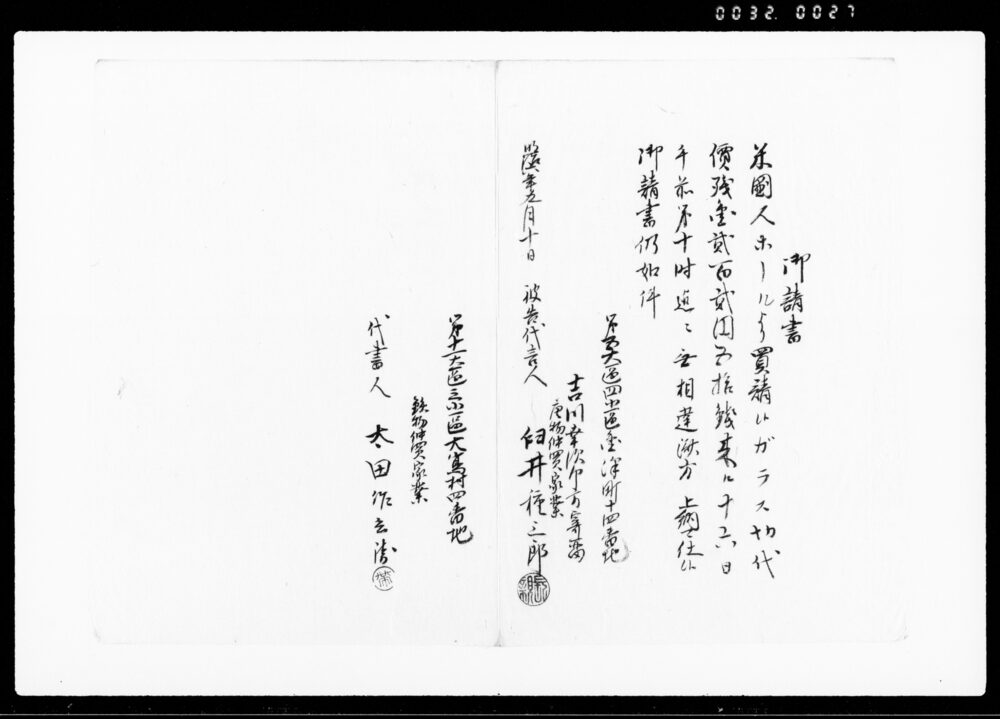 0032. 0027
御請書
米國人ホールより買請候ガラス切代
價残金貳百貳円五拾銭来ル十六日
午前第十時迄ニ無相違済方上納可仕候
御請書仍如件
第五大區四小區金澤町十四番地
吉川幸次郎方寄留
唐物仲買家業
明治八年五月十日 被告代言人 臼井種三郎
第十一大區三小區大嶌村四番地
鉄物仲買家業
代書人 太田作立